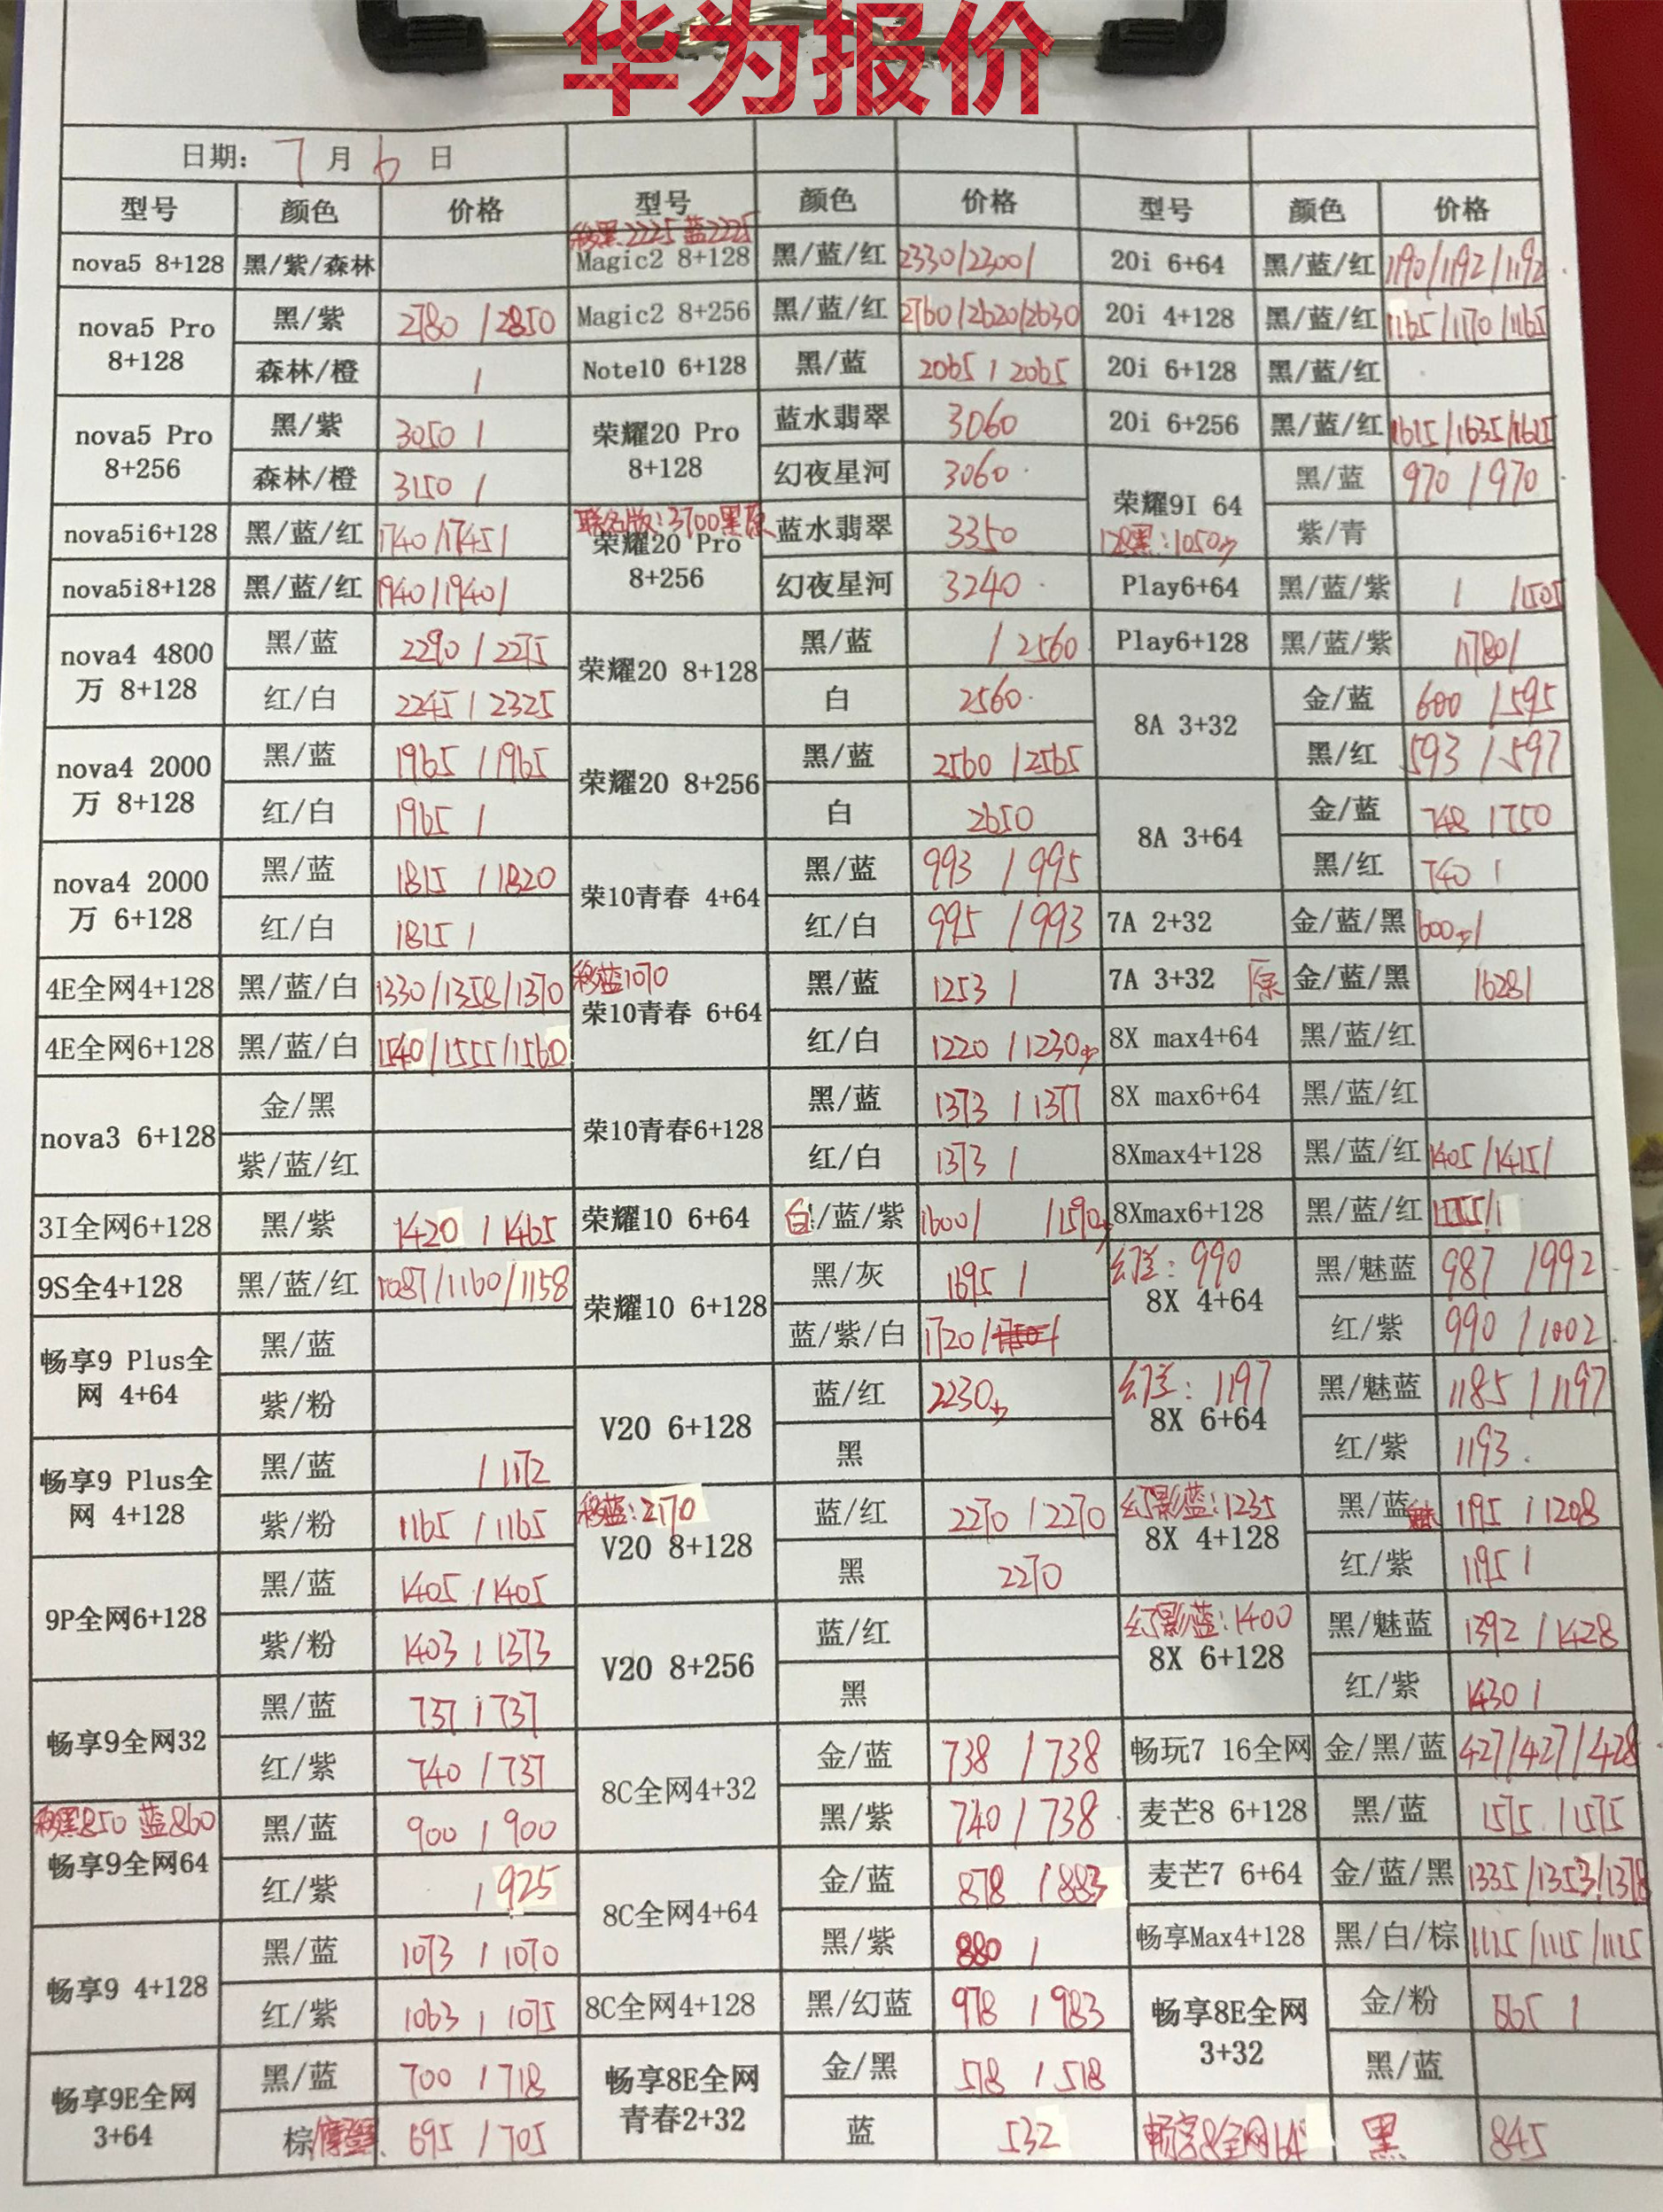 华为报价
日期： 7 月 6 日
型号 颜色 价格 型号 颜色 价格 型号 颜色 价格
移黑2225 蓝2225
nova5 8+128 黑/紫/森林 Magic2 8+128 黑/蓝/红 2330/2300/ 20i 6+64 黑/蓝/红 1190/1192/1192
nova5 Pro 8+128 黑/紫 2780/2850 Magic2 8+256 黑/蓝/红 2760/2620/2630 20i 4+128 黑/蓝/红 1165/1170/1165
森林/橙 / Note10 6+128 黑/蓝 2065/2065 20i 6+128 黑/蓝/红
nova5 Pro 8+256 黑/紫 3050/ 荣耀20 Pro 8+128 蓝水翡翠 3060 20i 6+256 黑/蓝/红 1615/1635/1615
森林/橙 3150/ 幻夜星河 3060 荣耀9I 64 黑/蓝 970/970
nova5i6+128 黑/蓝/红 1740/1745/ 联名版:3700黑原 荣耀20 Pro 8+256 蓝水翡翠 3350 128黑:1050少 紫/青
nova5i8+128 黑/蓝/红 1940/1940/ 幻夜星河 3240 Play6+64 黑/蓝/紫 / /1505
nova4 4800万 8+128 黑/蓝 2290/2275 荣耀20 8+128 黑/蓝 /2560 Play6+128 黑/蓝/紫 1780/
红/白 2245/2325 白 2560 8A 3+32 金/蓝 600/595
nova4 2000万 8+128 黑/蓝 1965/1965 荣耀20 8+256 黑/蓝 2560/2565 黑/红 593/597
红/白 1965/ 白 2650 8A 3+64 金/蓝 748/750
nova4 2000万 6+128 黑/蓝 1815/1820 荣10青春 4+64 黑/蓝 993/995 黑/红 740/
红/白 1815/ 红/白 995/993 7A 2+32 金/蓝/黑 600少/
4E全网4+128 黑/蓝/白 1330/1358/1370 移蓝1070 荣10青春 6+64 黑/蓝 1253/ 7A 3+32 原 金/蓝/黑 /628/
4E全网6+128 黑/蓝/白 1540/1555/1560 红/白 1220/1230少 8X max4+64 黑/蓝/红
nova3 6+128 金/黑 荣10青春6+128 黑/蓝 1373/1377 8X max6+64 黑/蓝/红
紫/蓝/红 红/白 1373/ 8Xmax4+128 黑/蓝/红 1405/1415/
3I全网6+128 黑/紫 1420/1465 荣耀10 6+64 白/蓝/紫 1600/ /1590少 8Xmax6+128 黑/蓝/红 1555/
9S全4+128 黑/蓝/红 1087/1160/1158 荣耀10 6+128 黑/灰 1695/ 幻羊: 990 8X 4+64 黑/魅蓝 987/992
畅享9 Plus全网 4+64 黑/蓝 蓝/紫/白 1720/ 红/紫 990/1002
紫/粉 V20 6+128 蓝/红 2230少 幻羊: 1197 8X 6+64 黑/魅蓝 1185/1197
畅享9 Plus全网 4+128 黑/蓝 /1172 黑 红/紫 1193
紫/粉 1165/1165 移蓝:2170 V20 8+128 蓝/红 2270/2270 幻影蓝:1235 8X 4+128 黑/蓝魅 1195/1208
9P全网6+128 黑/蓝 1405/1405 黑 2270 红/紫 1195/
紫/粉 1403/1373 V20 8+256 蓝/红 幻影蓝:1400 8X 6+128 黑/魅蓝 1392/1428
畅享9全网32 黑/蓝 737/737 黑 红/紫 1430/
红/紫 740/737 8C全网4+32 金/蓝 738/738 畅玩7 16全网 金/黑/蓝 427/427/428
移黑850 蓝860 畅享9全网64 黑/蓝 900/900 黑/紫 740/738 麦芒8 6+128 黑/蓝 1575/1575
红/紫 /925 8C全网4+64 金/蓝 878/883 麦芒7 6+64 金/蓝/黑 1335/1353/1378
畅享9 4+128 黑/蓝 1073/1070 黑/紫 880/ 畅享Max4+128 黑/白/棕 1115/1115/1115
红/紫 1063/1075 8C全网4+128 黑/幻蓝 978/983 畅享8E全网 3+32 金/粉 565/
畅享9E全网 3+64 黑/蓝 700/718 畅享8E全网青春2+32 金/黑 518/518 黑/蓝
棕 695/705 蓝 532 畅享8全网64 黑 845